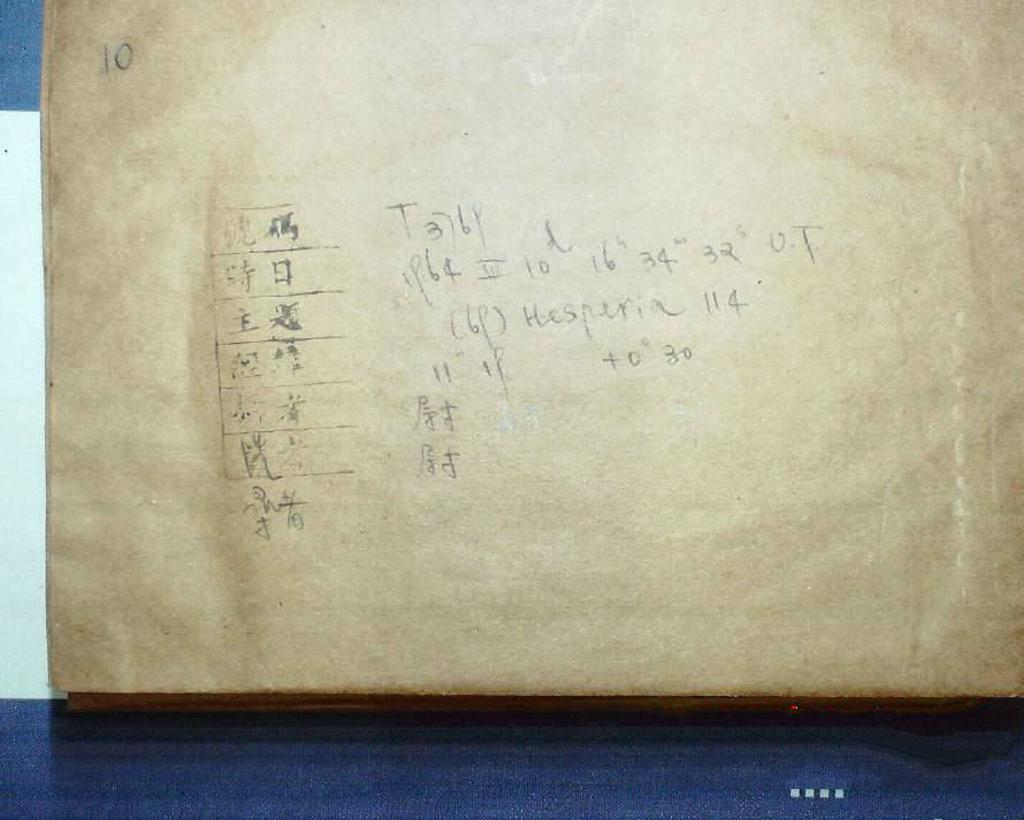 10
號碼 T 3769
時日 1964 III 10d 16h 34m 32s U.T.
主題 (69) Hesperia 114
經緯 11h 19 +0° 30
者 尉
尉
者